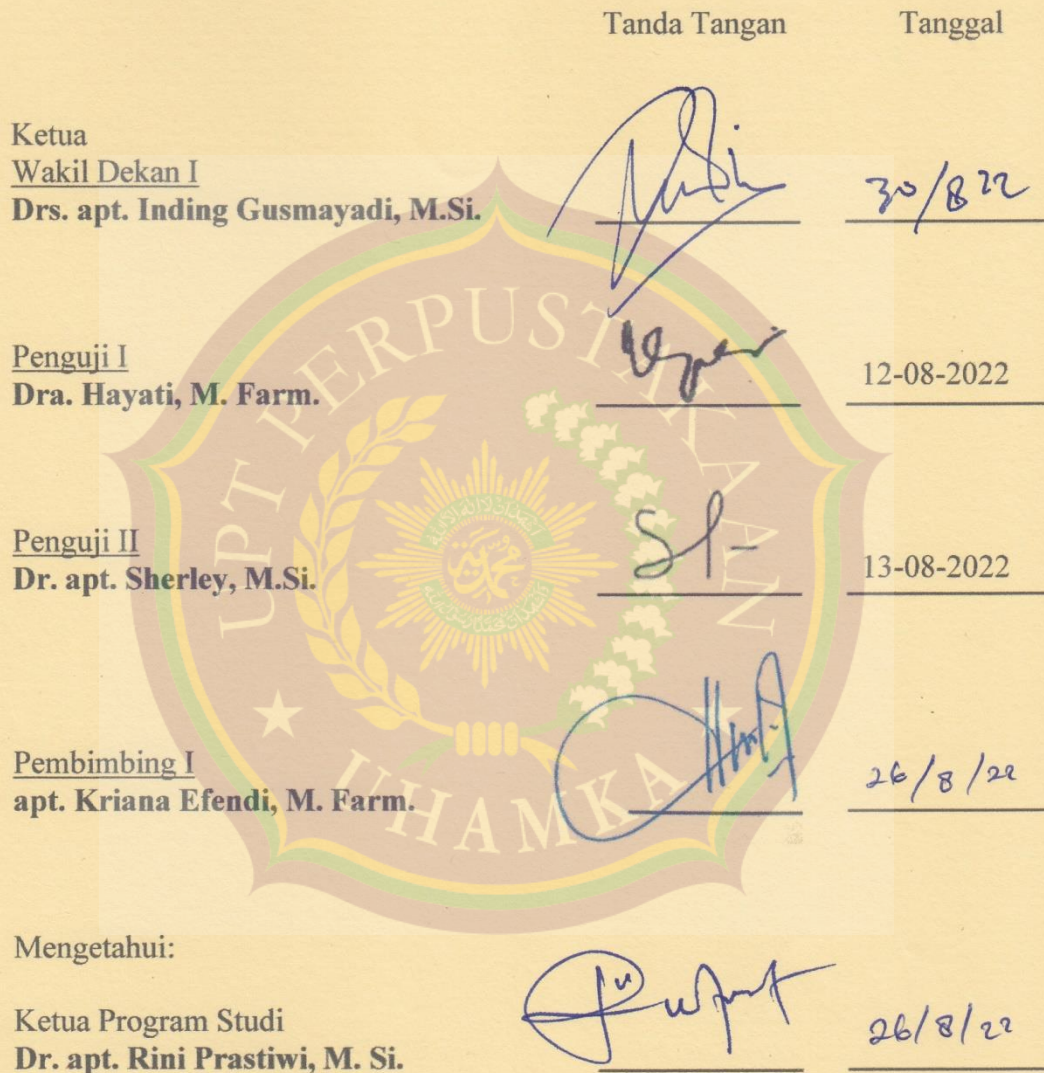 Tanda Tangan Tanggal
Ketua
Wakil Dekan I
Drs. apt. Inding Gusmayadi, M.Si.
30/8 22
Penguji I
Dra. Hayati, M. Farm.
12-08-2022
Penguji II
Dr. apt. Sherley, M.Si.
13-08-2022
Pembimbing I
apt. Kriana Efendi, M. Farm.
26/8/22
Mengetahui:
Ketua Program Studi
Dr. apt. Rini Prastiwi, M. Si.
26/8/22
UPT PERPUSTAKAAN
UHAMKA